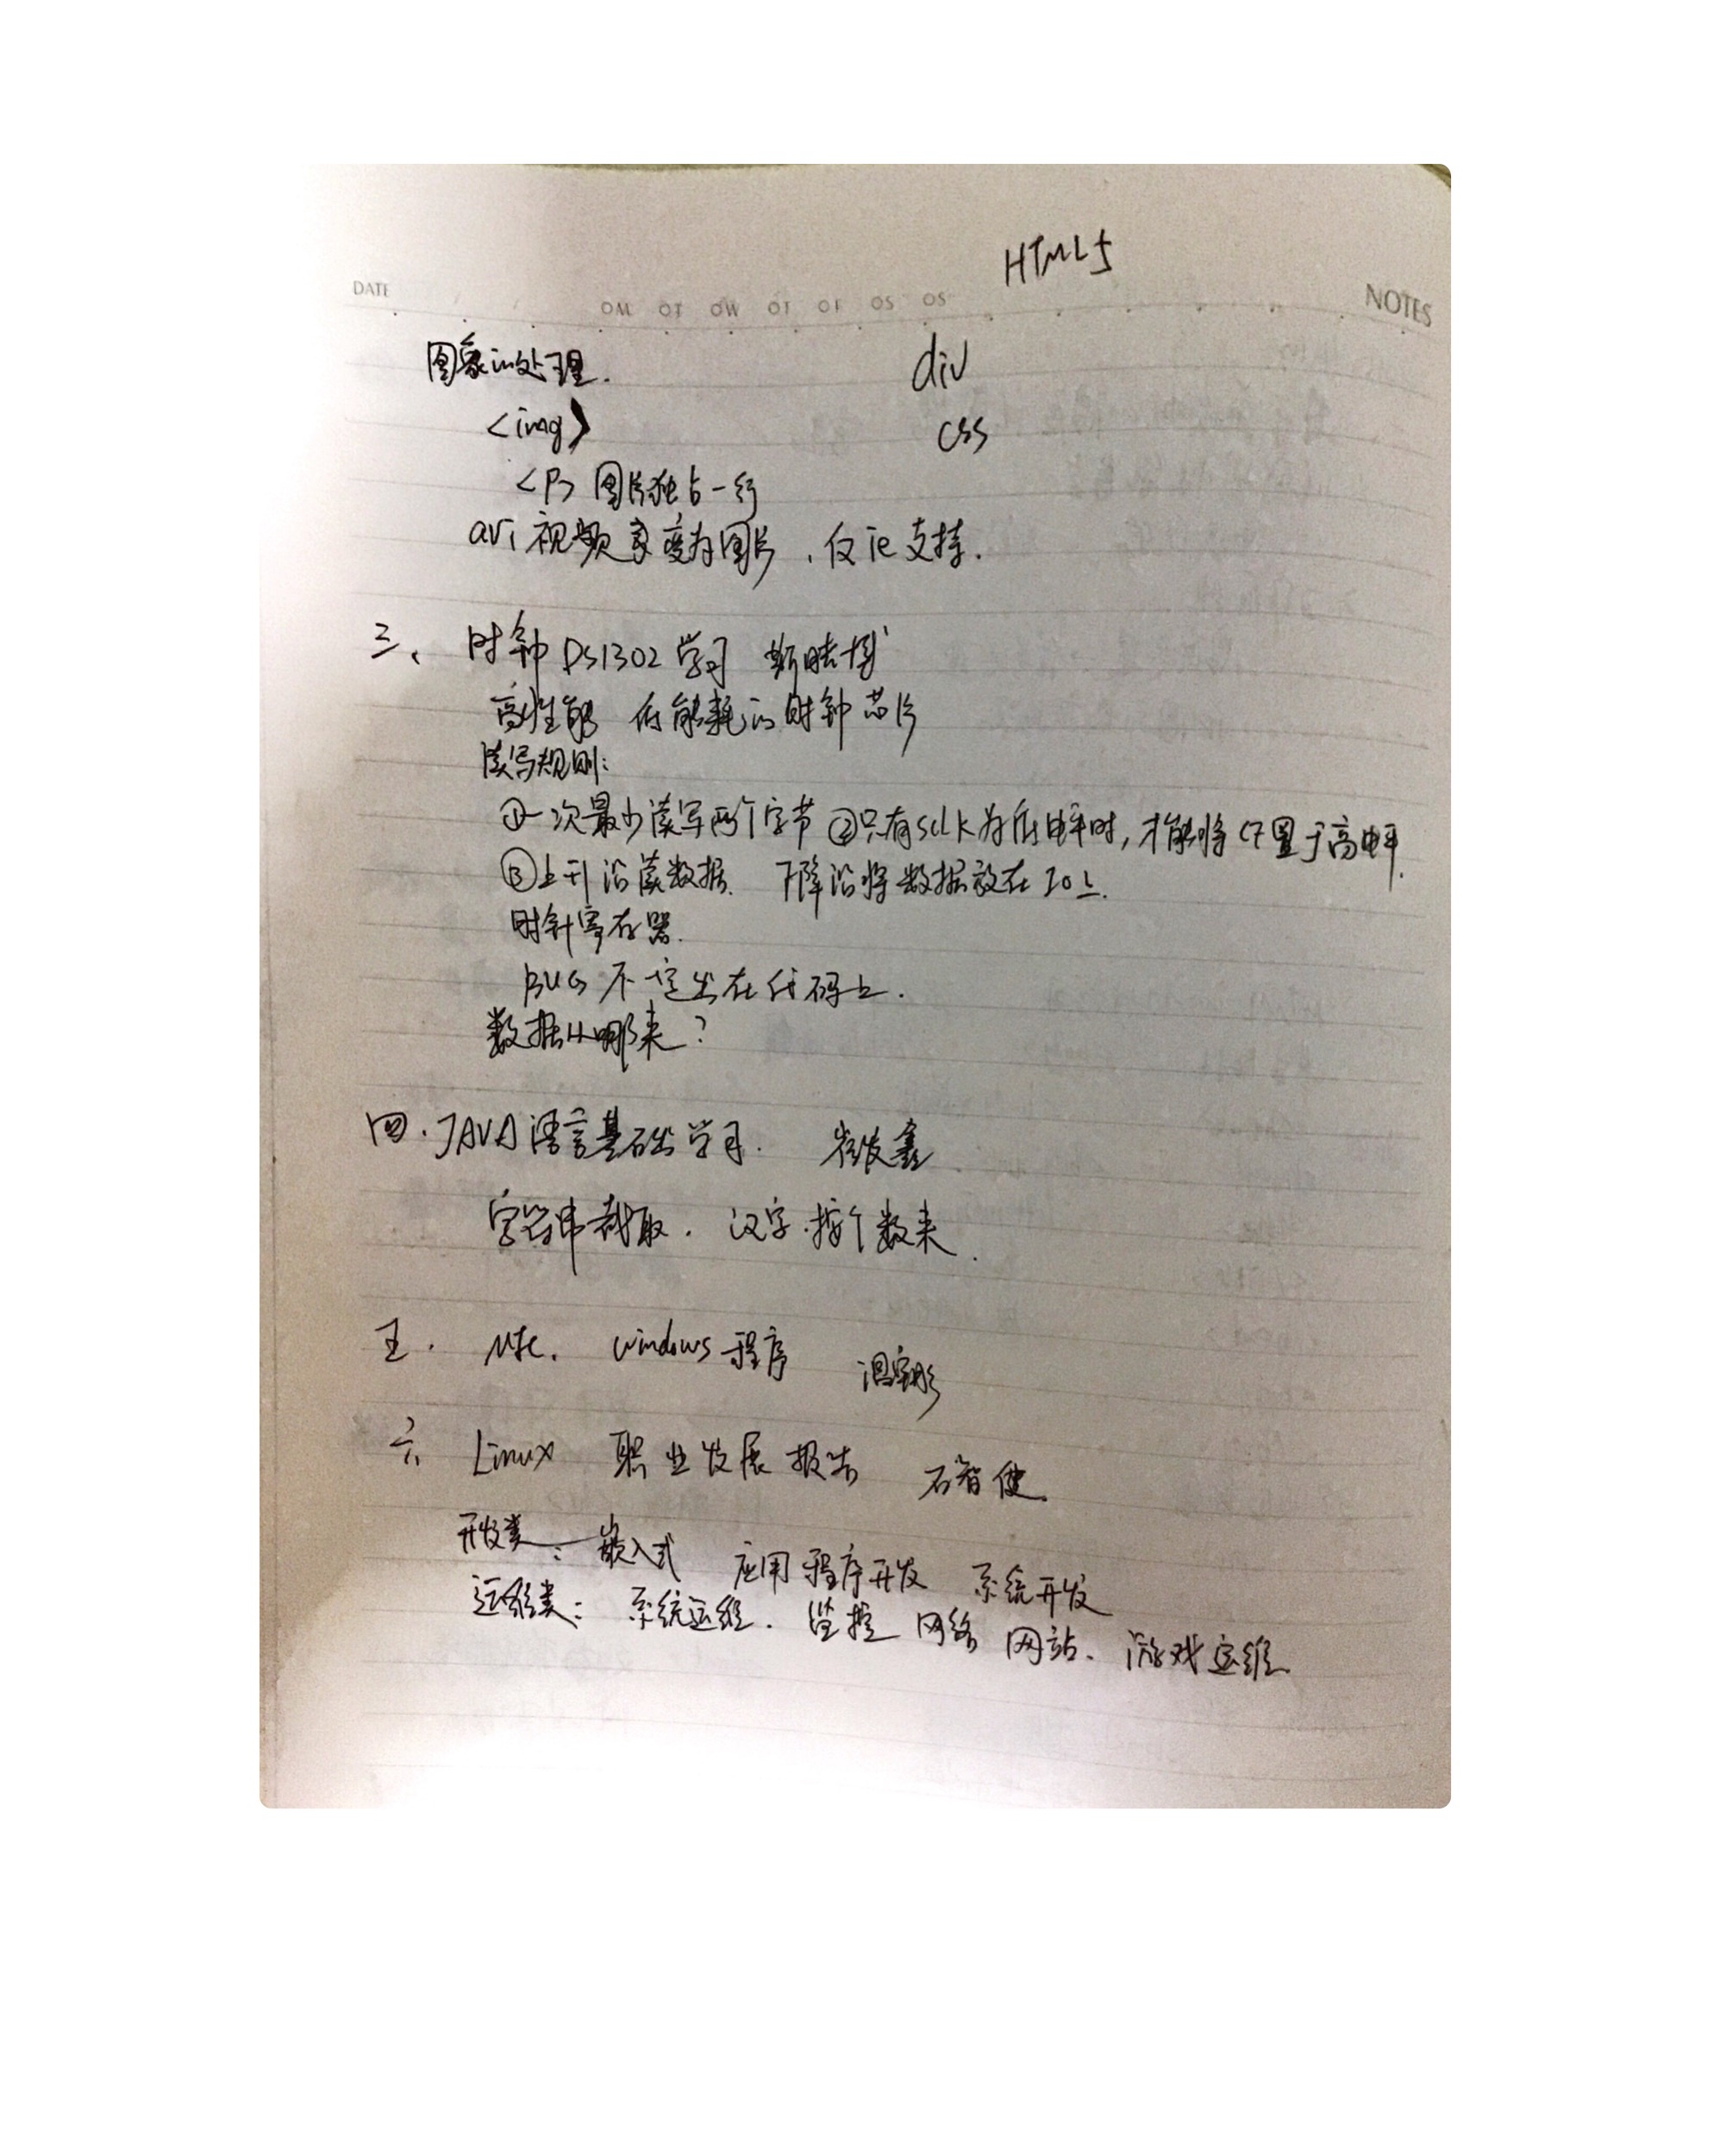 HTML5
DATE OM OT OW OT OF OS OS NOTES
图象的处理. div
<img> css
<P> 图片独占一行
avi 视频变为图片、仅ie支持.
三、时钟DS1302学习
高性能 低能耗的时钟芯片
读写规则:
①一次最少读写两个字节 ②只有sclk为低电平时,才能将CE置于高电平.
③上升沿读数据. 下降沿将数据放在IO上.
时钟寄存器.
BUG 不一定出在代码上.
数据从哪来?
四.JAVA语言基础学习. 崔俊鑫
字符串截取. 汉字.按个数来.
五. Mfc. windows程序
六 Linux 职业发展报告 石智健.
开发类: 嵌入式 应用程序开发 系统开发
运维类: 系统运维. 监控 网络 网站. 游戏运维